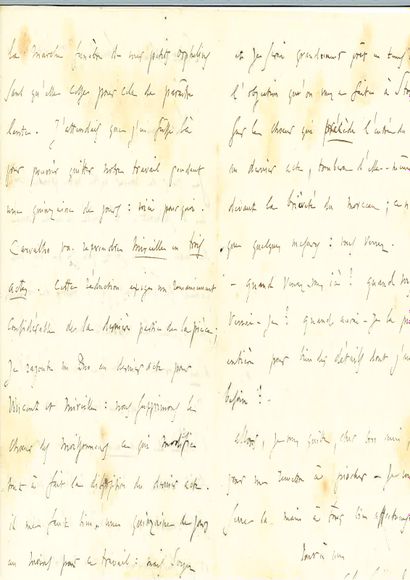 la marche funèbre de mes petits orphelins
sans qu'elle cesse pour cela de paraître
lente. J'attendais que j'en fusse là
pour pouvoir quitter notre travail pendant
une quinzaine de jours : voici pourquoi.
Carvalho va reprendre Mireille en trois
actes. Cette réduction exige un remaniement
considérable de la dernière partie de la pièce ;
Je rajoute un Duo au dernier acte pour
Vincent et Mireille : nous supprimons le
chœur des moissonneurs ce qui modifie
tout à fait la disposition du dernier acte.
il me faut bien une quinzaine de jours
au moins pour ce travail : mais soyez
et je serai grandement prêt en temps
l'objection qu'on vous a faite à
sur le chœur qui précède l'entrée du
au dernier acte, tombera d'elle-même
devant la brièveté du morceau ;
que quelques mesures : vous verrez.
- quand venez-vous ici ? quand vous
verrai-je ? quand aurai-je la pièce
entière pour bien des détails dont j'ai
besoin ? -
allons, je vous quitte, cher bon ami,
pour me remettre à piocher - je vous
serre la main à tous bien affectueusement
tout à vous